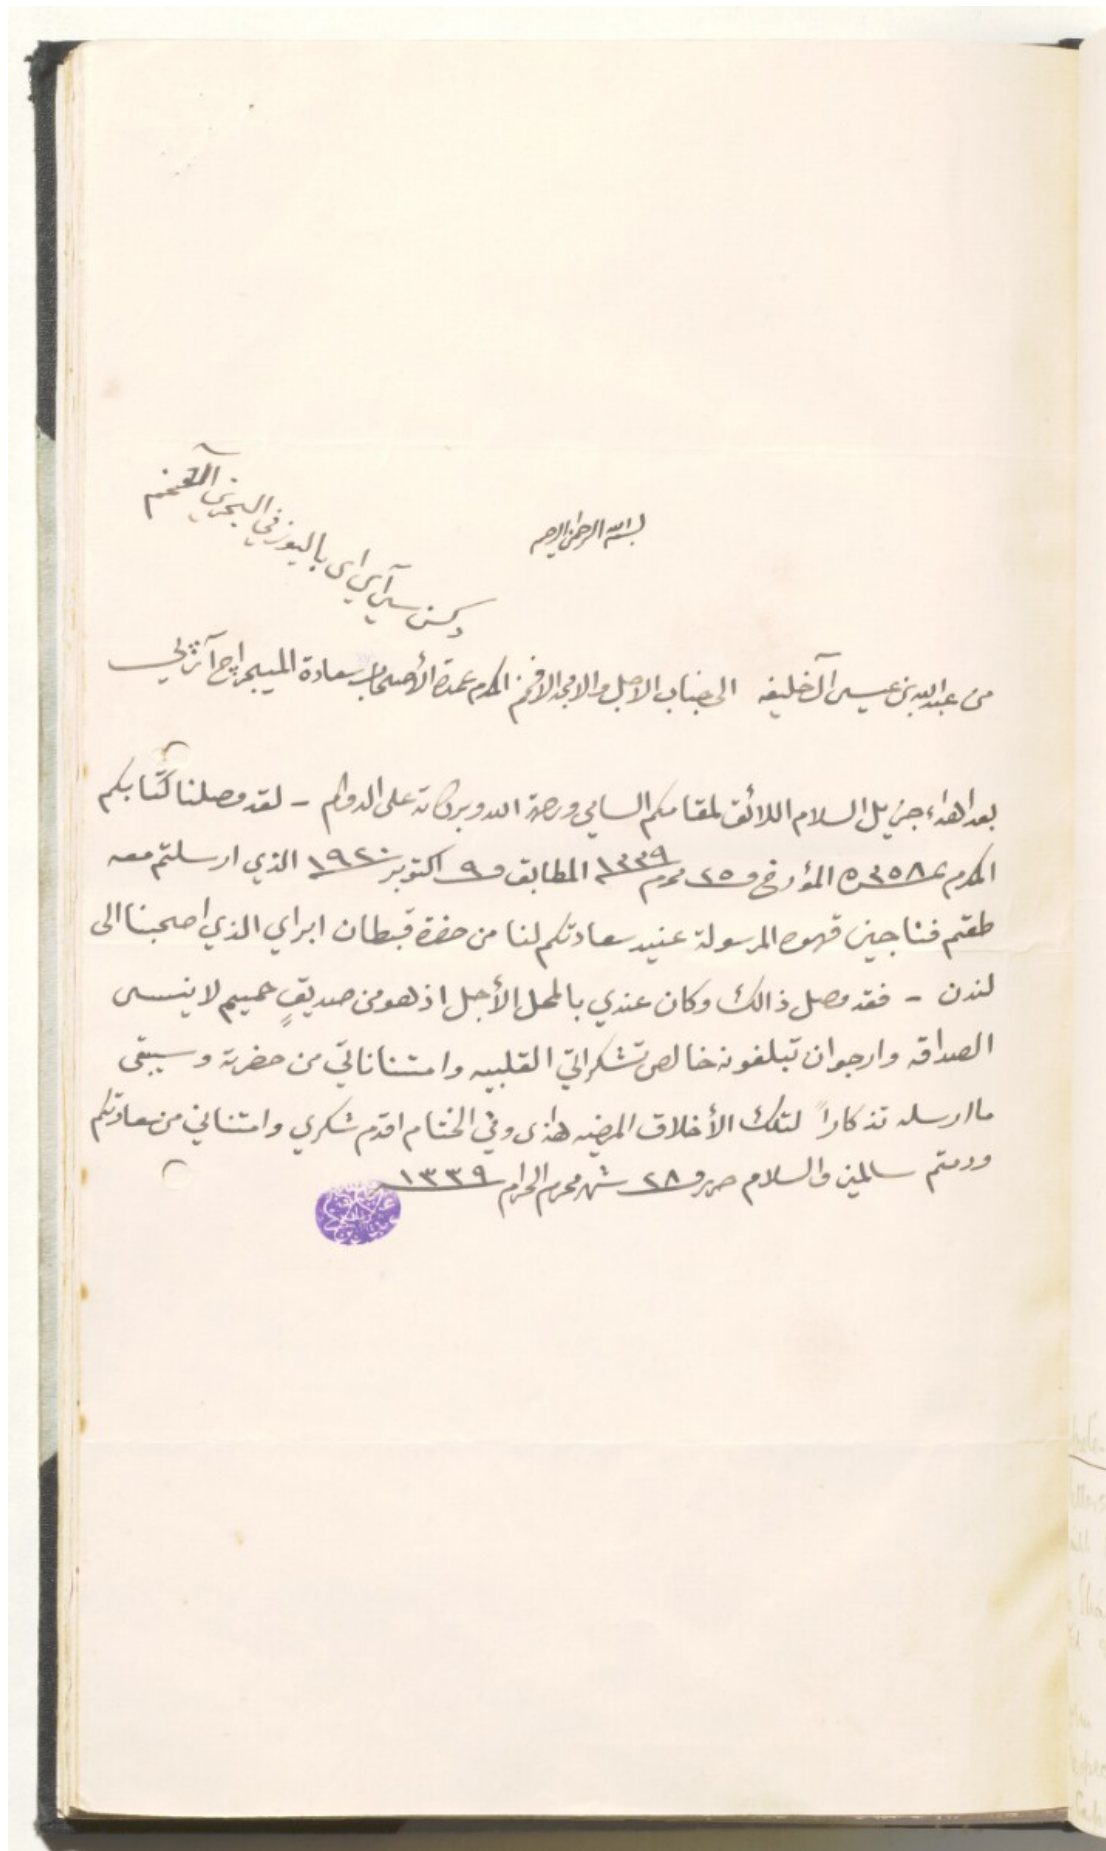 بسم الله الرحمن الرحيم
من عبدالله بن عيسى آل خليفه الى جناب الاجل والامجد الافخم المكرم عمدة الأصحاب سعادة الميجر اچ آر پي
دكسن سي آي اي باليوز في البحرين الأفخم
بعد اهداء جزيل السلام اللائق لمقامكم السامي ورحمة الله وبركاته على الدوام - لقد وصلنا كتابكم
المكرم المؤرخ ٢٥ محرم ١٣٣٩ المطابق ٩ اكتوبر ١٩٢٠ الذي ارسلتم معه
طقم فناجين قهوه المرسولة عنيد سعادتكم لنا من حضرة قبطان ابراي الذي اصحبنا الى
لندن - فقد وصل ذالك وكان عندي بالمحل الأجل اذ هو من صديقٍ حميم لا ينسى
الصداقه وارجو ان تبلغونه خالص تشكراتي القلبيه وامتناناتي من حضرته وسيبقى
ما ارسله تذكاراً لتلك الأخلاق المرضيه هذى وفي الختام اقدم شكري وامتناني من سعادتكم
ودمتم سالمين والسلام حرر ٢٨ شهر محرم الحرام ١٣٣٩